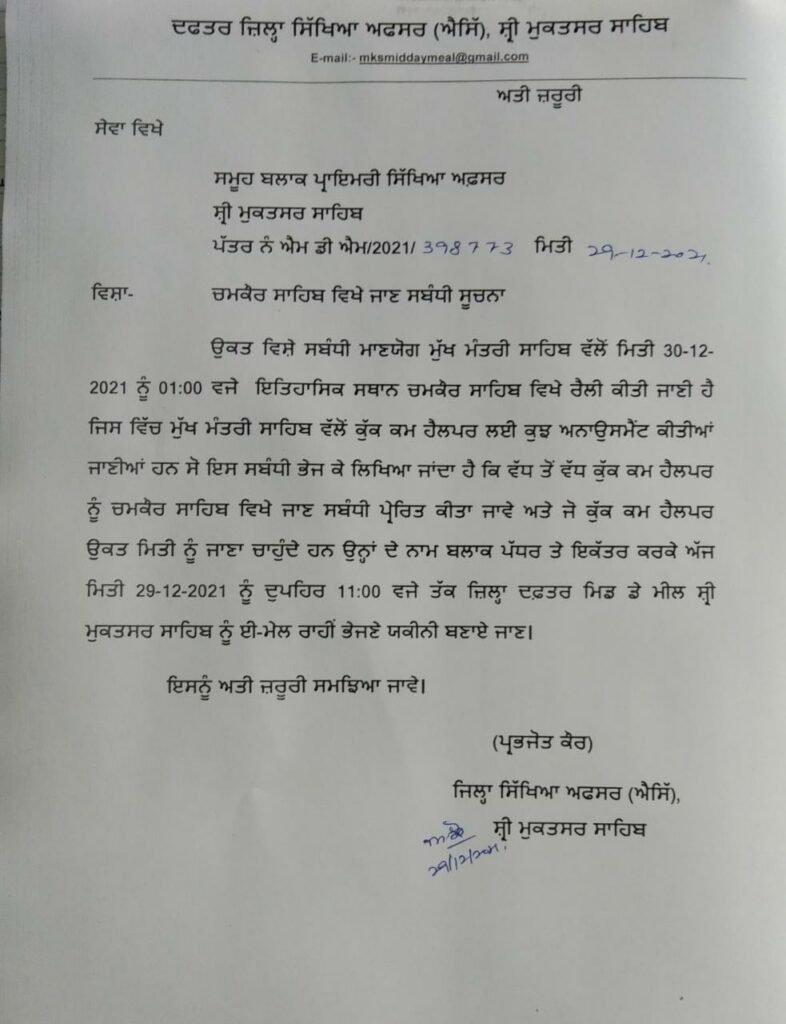 ਦਫਤਰ ਜ਼ਿਲ੍ਹਾ ਸਿੱਖਿਆ ਅਫਸਰ (ਐਸਿੱ), ਸ਼੍ਰੀ ਮੁਕਤਸਰ ਸਾਹਿਬ
E-mail:- mksmiddaymeal@gmail.com
ਅਤੀ ਜ਼ਰੂਰੀ
ਸੇਵਾ ਵਿਖੇ
ਸਮੂਹ ਬਲਾਕ ਪ੍ਰਾਇਮਰੀ ਸਿੱਖਿਆ ਅਫ਼ਸਰ
ਸ਼੍ਰੀ ਮੁਕਤਸਰ ਸਾਹਿਬ
ਪੱਤਰ ਨੰ ਐਮ ਡੀ ਐਮ/2021/ 398773 ਮਿਤੀ 29-12-2021.
ਵਿਸ਼ਾ- ਚਮਕੌਰ ਸਾਹਿਬ ਵਿਖੇ ਜਾਣ ਸਬੰਧੀ ਸੂਚਨਾ
ਉਕਤ ਵਿਸ਼ੇ ਸਬੰਧੀ ਮਾਣਯੋਗ ਮੁੱਖ ਮੰਤਰੀ ਸਾਹਿਬ ਵੱਲੋਂ ਮਿਤੀ 30-12-
2021 ਨੂੰ 01:00 ਵਜੇ ਇਤਿਹਾਸਿਕ ਸਥਾਨ ਚਮਕੌਰ ਸਾਹਿਬ ਵਿਖੇ ਰੈਲੀ ਕੀਤੀ ਜਾਣੀ ਹੈ
ਜਿਸ ਵਿੱਚ ਮੁੱਖ ਮੰਤਰੀ ਸਾਹਿਬ ਵੱਲੋਂ ਕੁੱਕ ਕਮ ਹੈਲਪਰ ਲਈ ਕੁਝ ਅਨਾਉਸਮੈਂਟ ਕੀਤੀਆਂ
ਜਾਣੀਆਂ ਹਨ ਸੋ ਇਸ ਸਬੰਧੀ ਭੇਜ ਕੇ ਲਿਖਿਆ ਜਾਂਦਾ ਹੈ ਕਿ ਵੱਧ ਤੋਂ ਵੱਧ ਕੁੱਕ ਕਮ ਹੈਲਪਰ
ਨੂੰ ਚਮਕੌਰ ਸਾਹਿਬ ਵਿਖੇ ਜਾਣ ਸਬੰਧੀ ਪ੍ਰੇਰਿਤ ਕੀਤਾ ਜਾਵੇ ਅਤੇ ਜੋ ਕੁੱਕ ਕਮ ਹੈਲਪਰ
ਉਕਤ ਮਿਤੀ ਨੂੰ ਜਾਣਾ ਚਾਹੁੰਦੇ ਹਨ ਉਨ੍ਹਾਂ ਦੇ ਨਾਮ ਬਲਾਕ ਪੱਧਰ ਤੇ ਇਕੱਤਰ ਕਰਕੇ ਅੱਜ
ਮਿਤੀ 29-12-2021 ਨੂੰ ਦੁਪਹਿਰ 11:00 ਵਜੇ ਤੱਕ ਜ਼ਿਲ੍ਹਾ ਦਫ਼ਤਰ ਮਿਡ ਡੇ ਮੀਲ ਸ਼੍ਰੀ
ਮੁਕਤਸਰ ਸਾਹਿਬ ਨੂੰ ਈ-ਮੇਲ ਰਾਹੀਂ ਭੇਜਣੇ ਯਕੀਨੀ ਬਣਾਏ ਜਾਣ।
ਇਸਨੂੰ ਅਤੀ ਜ਼ਰੂਰੀ ਸਮਝਿਆ ਜਾਵੇ।
(ਪ੍ਰਭਜੋਤ ਕੌਰ)
ਜਿਲ੍ਹਾ ਸਿੱਖਿਆ ਅਫਸਰ (ਐਸਿੱ),
ਸ਼੍ਰੀ ਮੁਕਤਸਰ ਸਾਹਿਬ
29/12/2021.